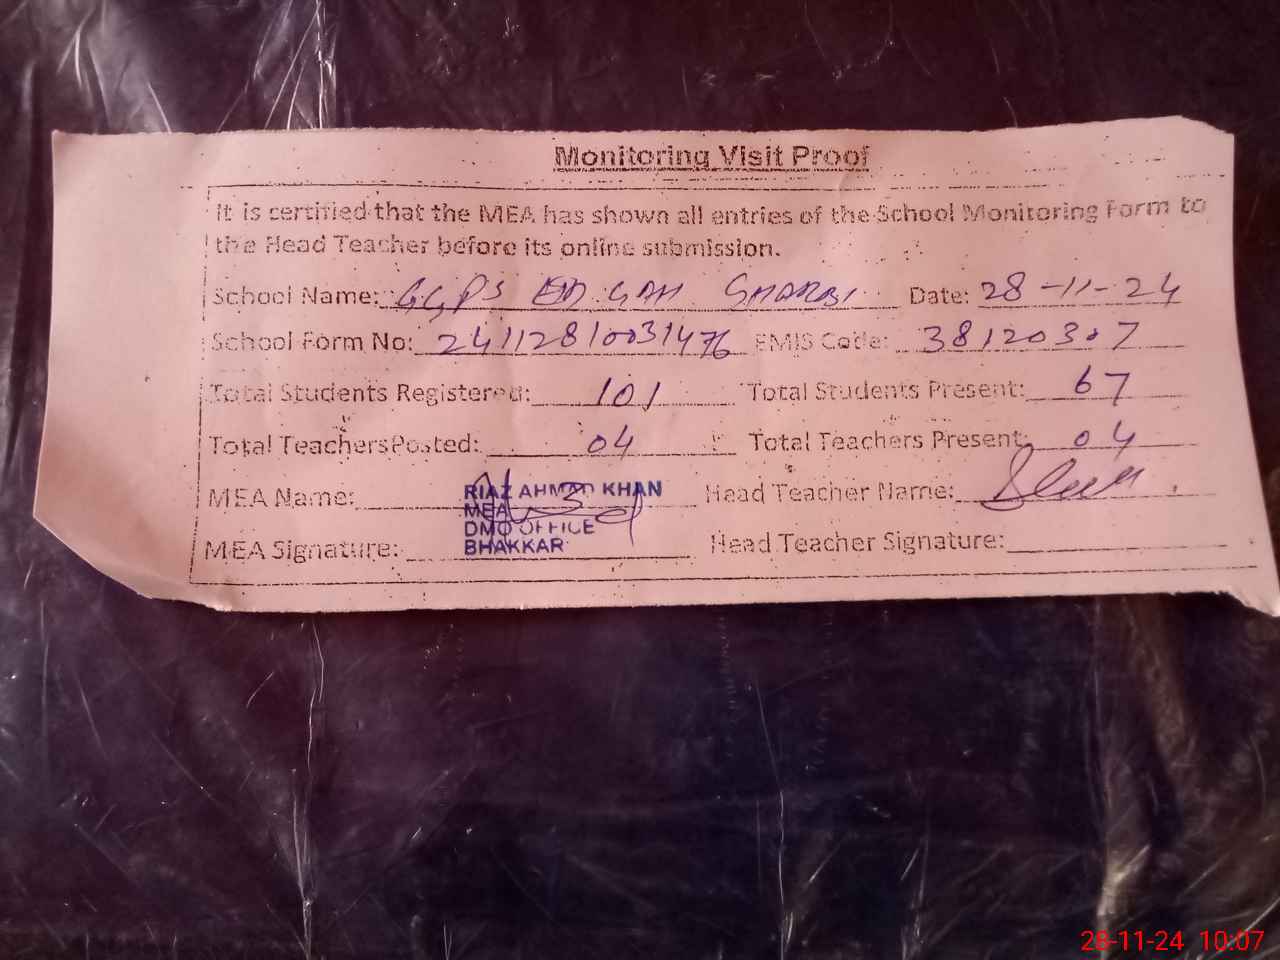 Monitoring Visit Proof
It is certified that the MEA has shown all entries of the School Monitoring Form to
the Head Teacher before its online submission.
School Name: GGPS EID GAH GHARBI Date: 28-11-24
School Form No: 24112810031476 EMIS Code: 38120307
Total Students Registered: 101 Total Students Present: 67
Total Teachers Posted: 04 Total Teachers Present: 04
MEA Name: RIAZ AHMAD KHAN Head Teacher Name:
MEA
DMO OFFICE
MEA Signature: BHAKKAR Head Teacher Signature:
28-11-24 10:07